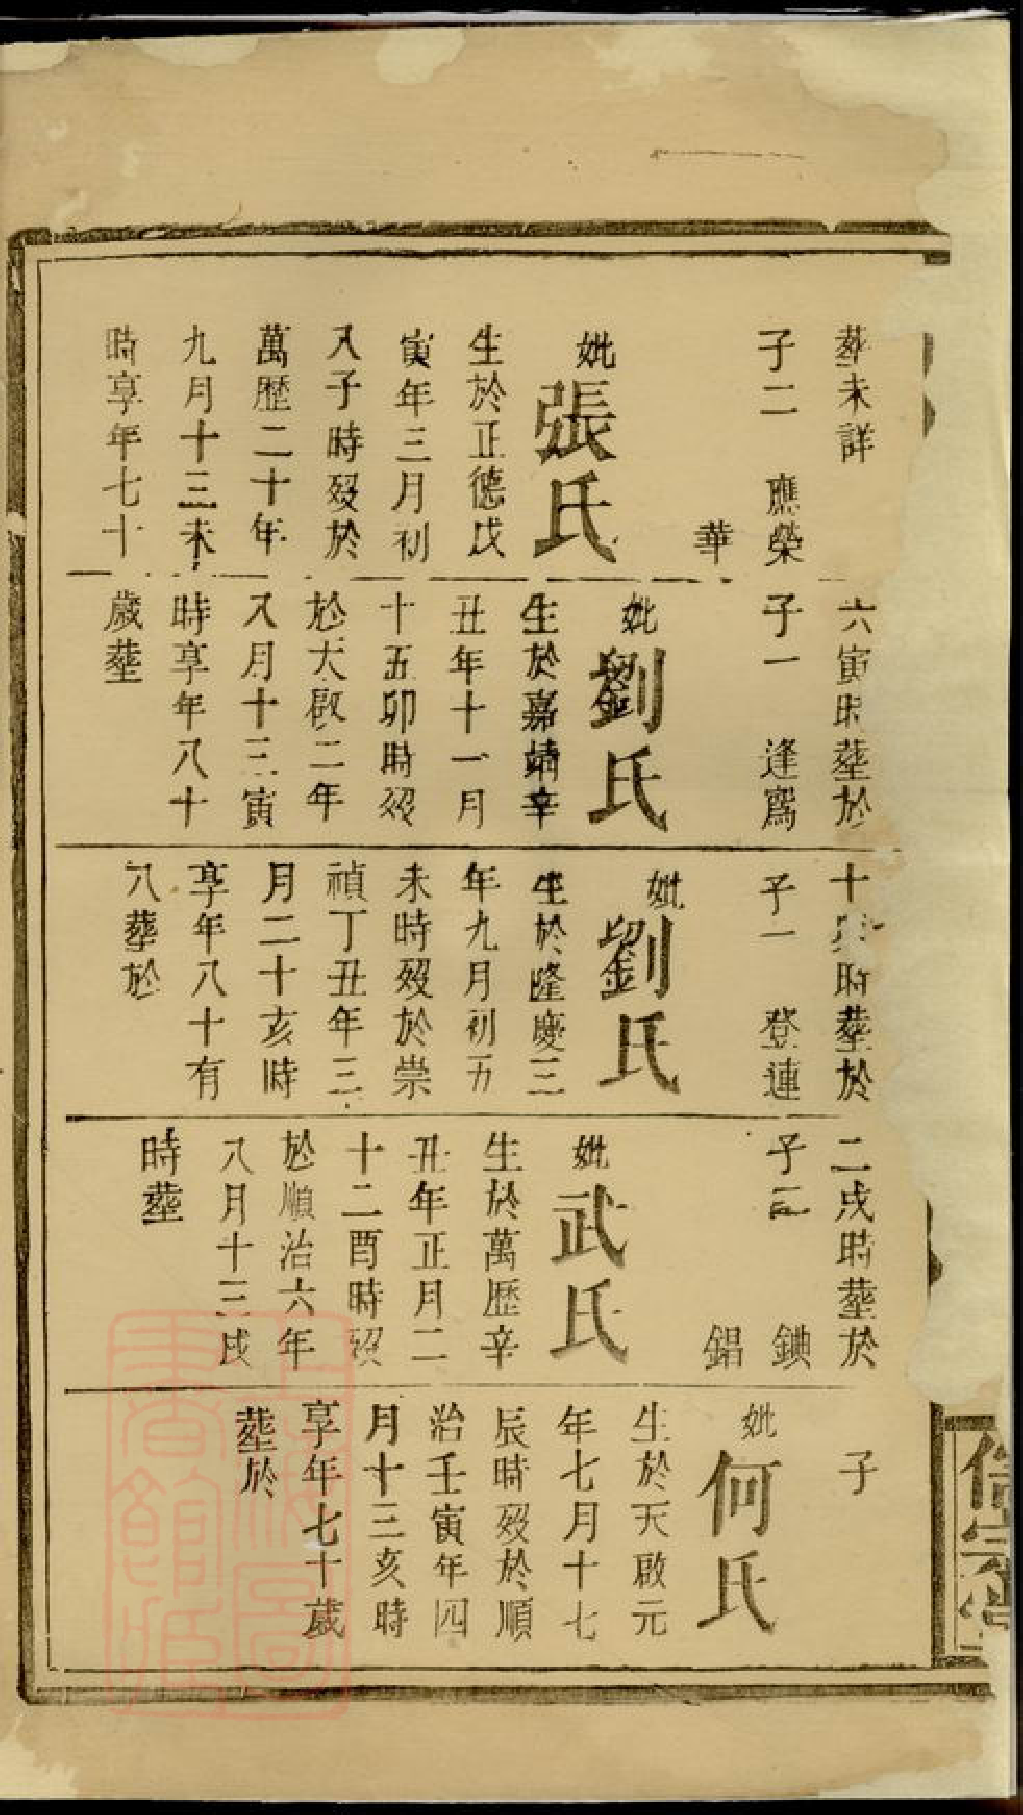 葬未詳
子二　應榮
華
妣張氏
生於正德戊
寅年三月初
八子時歿於
萬歷二十年
九月十三未
時享年七十
六寅時塟於
子一　逢寫
妣劉氏
生於嘉靖辛
丑年十一月
十五卯時歿
於天啟二年
八月十三寅
時享年八十
歲塟
十　時塟於
子一　登連
妣劉氏
生於隆慶三
年九月初五
未時歿於崇
禎丁丑年三
月二十亥時
享年八十有
八葬於
二戌時塟於
子二　鐭
錩
妣武氏
生於萬歷辛
丑年正月二
十二酉時歿
於順治六年
八月十三戌
時塟
子
妣何氏
生於天啟元
年七月十七
辰時歿於順
治壬寅年四
月十三亥時
享年七十歲
塟於
上海圖
書館藏